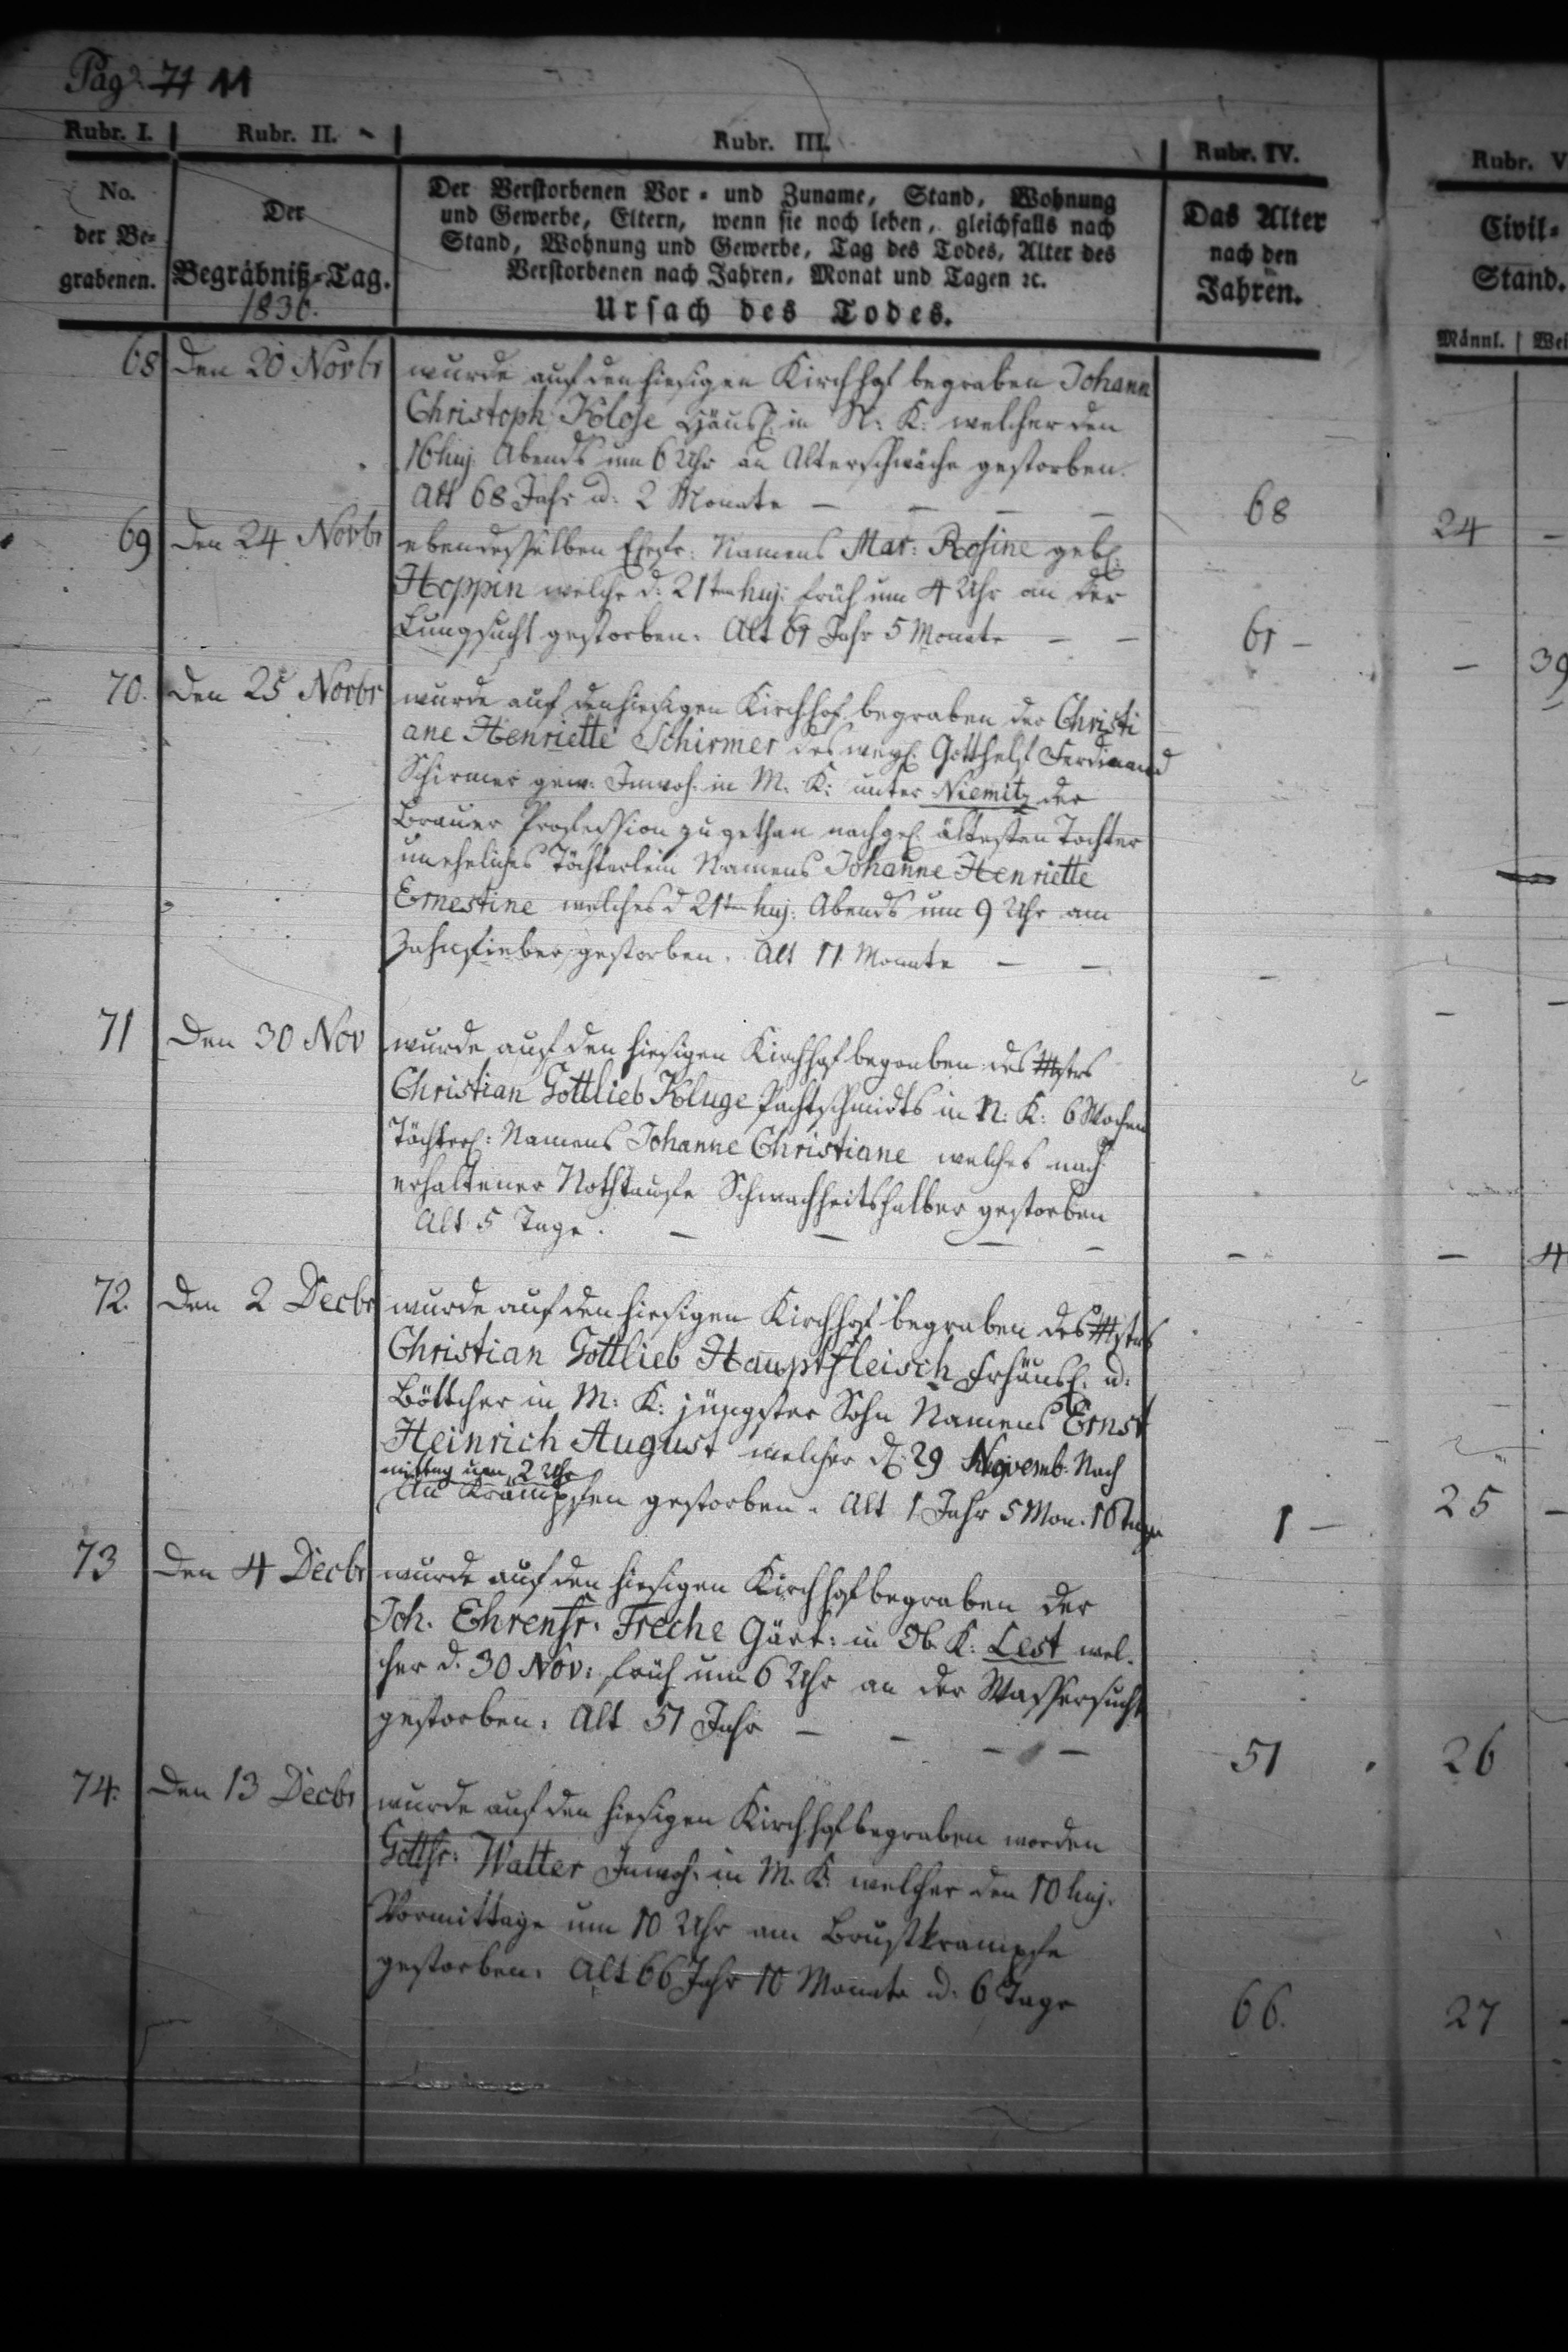 Pag. 71 11
Rubr. I. Rubr. II. Rubr. III. Rubr. IV. Rubr. V
No. der Be-grabenen.
Der Begräbniß-Tag. 1830.
Der Verstorbenen Vor- und Zuname, Stand, Wohnung
und Gewerbe, Eltern, wenn sie noch leben, gleichfalls nach
Stand, Wohnung und Gewerbe, Tag des Todes, Alter des
Verstorbenen nach Jahren, Monat und Tagen ꝛc.
Ursach des Todes.
Das Alter
nach den
Jahren.
Civil-
Stand.
Männl. Wei
68 Den 20 Novbr wurde auf den hiesigen Kirchhof begraben Johann
Christoph Klose Häusl: in N: K: welcher den
16 huj: Abends um 6 Uhr an Alterschwäche gestorben.
Alt 68 Jahr u: 2 Monate — — — — 68 24 —
69 Den 24 Novbr ebendesselben Ehefr: Namens Mar: Rosine geb:
Hoppin welche d: 21ten huj: früh um 4 Uhr an der
Lungsucht gestorben. Alt 61 Jahr 5 Monate — — 61 — — 39
70. Den 25 Novbr wurde auf den hiesigen Kirchhof begraben der Christi
ane Henriette Schirmer des Gotthelf Ferdinand
Schirmer gew: Inwoh: in M. K: unter Niemitz der
Brauer Profession zugethan nachgel: ältesten Tochter
uneheliches Töchterlein Namens Johanne Henriette
Ernestine welches d 21ten huj: Abends um 9 Uhr am
Zahnfieber gestorben. Alt 11 Monate — — — — —
71 Den 30 Nov wurde auf den hiesigen Kirchhof begraben des Mstrs
Christian Gottlieb Kluge Pachtschmidts in N: K: 6 Wochen
Töchterl: Namens Johanne Christiane welches nach
erhaltener Nothtaufe Schwachheitshalber gestorben
Alt 5 Tage. — — — — — — 4
72. Den 2 Decbr wurde auf den hiesigen Kirchhof begraben des Mstrs
Christian Gottlieb Hauptfleisch Frhäusl: u:
Böttcher in M: K: jüngster Sohn Namens Ernst
Heinrich August welcher d: 29 Novemb: Nach
mittag um 2 Uhr
An Krämpfen gestorben. Alt 1 Jahr 5 Mon. 16 Tage 1 — 25 —
73 Den 4 Decbr wurde auf den hiesigen Kirchhof begraben der
Joh. Ehrenfr. Freche Gärt: in Ob. K: Lest wel-
cher d. 30 Nov: früh um 6 Uhr an der Wassersucht
gestorben. Alt 51 Jahr — — — — 51 26
74. Den 13 Decbr wurde auf den hiesigen Kirchhof begraben worden
Gottfr: Walter Inwoh: in M. K: welcher den 10 huj:
Vormittage um 10 Uhr am Brustkrampfe
gestorben. Alt 66 Jahr 10 Monate u: 6 Tage 66. 27